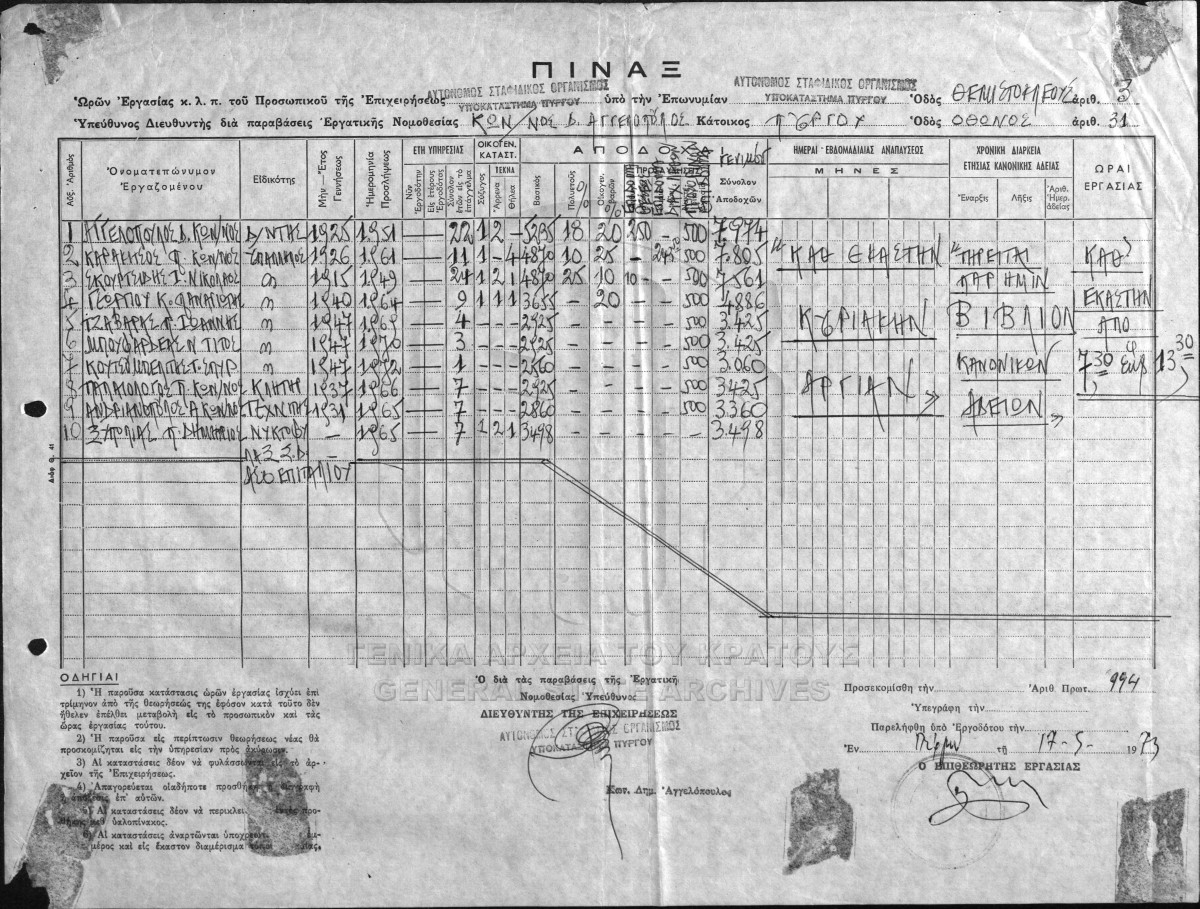 ΠΙΝΑΞ
Ὡρῶν Ἐργασίας κ.λ.π. τοῦ Προσωπικοῦ τῆς Ἐπιχειρήσεως ΑΥΤΟΝΟΜΟΣ ΣΤΑΦΙΔΙΚΟΣ ΟΡΓΑΝΙΣΜΟΣ ΥΠΟΚΑΤΑΣΤΗΜΑ ΠΥΡΓΟΥ ὑπὸ τὴν Ἐπωνυμίαν ΑΥΤΟΝΟΜΟΣ ΣΤΑΦΙΔΙΚΟΣ ΟΡΓΑΝΙΣΜΟΣ ΥΠΟΚΑΤΑΣΤΗΜΑ ΠΥΡΓΟΥ Ὁδὸς ΘΕΜΙΣΤΟΚΛΕΟΥΣ ἀριθ. 3
Ὑπεύθυνος Διευθυντὴς διὰ παραβάσεις Ἐργατικῆς Νομοθεσίας ΚΩΝ/ΝΟΣ Δ. ΑΓΓΕΛΟΠΟΥΛΟΣ Κάτοικος ΠΥΡΓΟΥ Ὁδὸς ΟΘΩΝΟΣ ἀριθ. 31
Αὔξ. Ἀριθμὸς
Ὀνοματεπώνυμον Ἐργαζομένου
Εἰδικότης
Μὴν - Ἔτος Γεννήσεως
Ἡμερομηνία Προσλήψεως
ΕΤΗ ΥΠΗΡΕΣΙΑΣ
Νῦν Ἐργοδότην
Εἰς ἑτέρους Ἐργοδότας
Σύνολον ἐτῶν εἰς τὸ ἐπάγγελμα
ΟΙΚΟΓΕΝ. ΚΑΤΑΣΤ.
Σύζυγος
ΤΕΚΝΑ
Ἄρρενα
Θήλεα
ΑΠΟΔΟΧΑΙ
Βασικὸς
Πολυετοῦς %
Οἰκογεν. βαρῶν %
Σύνολον Ἀποδοχῶν
ΗΜΕΡΑΙ ἙΒΔΟΜΑΔΙΑΙΑΣ ΑΝΑΠΑΥΣΕΩΣ
ΜΗΝΕΣ
ΧΡΟΝΙΚΗ ΔΙΑΡΚΕΙΑ ΕΤΗΣΙΑΣ ΚΑΝΟΝΙΚΗΣ ΑΔΕΙΑΣ
Ἔναρξις
Λῆξις
Ἀριθ. Ἡμερ. ἀδείας
ΩΡΑΙ ΕΡΓΑΣΙΑΣ
1 ΑΓΓΕΛΟΠΟΥΛΟΣ Δ. ΚΩΝ/ΝΟΣ Δ/ΝΤΗΣ 1925 1951 — 22 1 2 - 5295 18 20 250 - 500 7.974
2 ΚΑΡΑΚΙΤΣΟΣ Π. ΚΩΝ/ΝΟΣ ΥΠΑΛΛΗΛΟΣ 1926 1961 — 11 1 - 4 4870 10 25 - 500 7.805
3 ΣΚΟΥΡΤΣΙΔΗΣ Γ. ΝΙΚΟΛΑΟΣ 〃 1915 1949 — 24 1 2 1 4870 25 10 10 - 500 7.561
4 ΓΕΩΡΓΙΟΥ Κ. ΠΑΝΑΓΙΩΤΗΣ 〃 1940 1964 — 9 1 1 1 3655 - 20 - - 500 4.886
5 ΤΖΑΒΑΡΑΣ Π. ΙΩΑΝΝΗΣ 〃 1947 1969 — 4 - - - 2925 - - - - 500 3.425
6 ΤΙΤΟΣ 〃 1947 1970 — 3 - - - 2925 - - - - 500 3.425
7 ΣΠΥΡ 〃 1947 1972 — 1 - - - 2560 - - - - 500 3.060
8 ΠΑΠΑΙΟΛΟΓΟΣ Π. ΚΩΝ/ΝΟΣ ΚΛΗΤΗΡ 1937 1966 — 7 - - - 2925 - - - - 500 3425
9 ΑΝΔΡΙΑΝΟΠΟΥΛΟΣ Α. ΚΩΝ/ΝΟΣ ΤΕΧΝΙΤΗΣ 1931 1965 — 7 - - - 2860 - - - - 500 3.360
10 Π. ΔΗΜΗΤΡΙΟΣ ΝΥΚΤΟΦΥ - 1965 — 7 1 2 1 3498 - - - - - 3.498
ΛΑΞ
"ΚΑΘ ΕΚΑΣΤΗΝ
ΚΥΡΙΑΚΗΝ
ΑΡΓΙΑΝ"
"ΤΗΡΕΙΤΑΙ
ΠΑΡ ΗΜΙΝ
ΒΙΒΛΙΟΝ
ΚΑΝΟΝΙΚΩΝ
ΑΔΕΙΩΝ"
ΚΑΘ'
ΕΚΑΣΤΗΝ
ΑΠΟ
7,30 ἕως 13,30
Διάφ. Θ. 41
ΓΕΝΙΚΑ ΑΡΧΕΙΑ ΤΟΥ ΚΡΑΤΟΥΣ
GENERAL STATE ARCHIVES
ΟΔΗΓΙΑΙ
1) Ἡ παροῦσα κατάστασις ὡρῶν ἐργασίας ἰσχύει ἐπὶ
τρίμηνον ἀπὸ τῆς θεωρήσεώς της ἐφόσον κατὰ τοῦτο δὲν
ἤθελεν ἐπέλθει μεταβολὴ εἰς τὸ προσωπικὸν καὶ τὰς
ὥρας ἐργασίας τούτου.
2) Ἡ παροῦσα εἰς περίπτωσιν θεωρήσεως νέας θὰ
προσκομίζεται εἰς τὴν ὑπηρεσίαν πρὸς ἀκύρωσιν.
3) Αἱ καταστάσεις δέον νὰ φυλάσσωνται εἰς τὸ ἀρ-
χεῖον τῆς Ἐπιχειρήσεως.
4) Ἀπαγορεύεται οἱαδήποτε προσθήκη
ἐπ' αὐτῶν.
5) Αἱ καταστάσεις δέον νὰ
ὑαλοπίνακος.
6) Αἱ καταστάσεις ἀναρτῶνται
μέρος καὶ εἰς ἕκαστον διαμέρισμα
Ὁ διὰ τὰς παραβάσεις τῆς Ἐργατικῆ
Νομοθεσίας Ὑπεύθυνος
ΔΙΕΥΘΥΝΤΗΣ ΤΗΣ ΕΠΙΧΕΙΡΗΣΕΩΣ
ΑΥΤΟΝΟΜΟΣ ΣΤΑΦΙΔΙΚΟΣ ΟΡΓΑΝΙΣΜΟΣ
ΥΠΟΚΑΤΑΣΤΗΜΑ ΠΥΡΓΟΥ
Κων. Δημ. Ἀγγελόπουλος
Προσεκομίσθη τὴν Ἀριθ. Πρωτ. 994
Ὑπεγράφη τὴν
Παρελήφθη ὑπὸ Ἐργοδότου τὴν
Ἐν Πύργῳ τῇ 17-5- 1973
Ο ΕΠΙΘΕΩΡΗΤΗΣ ΕΡΓΑΣΙΑΣ